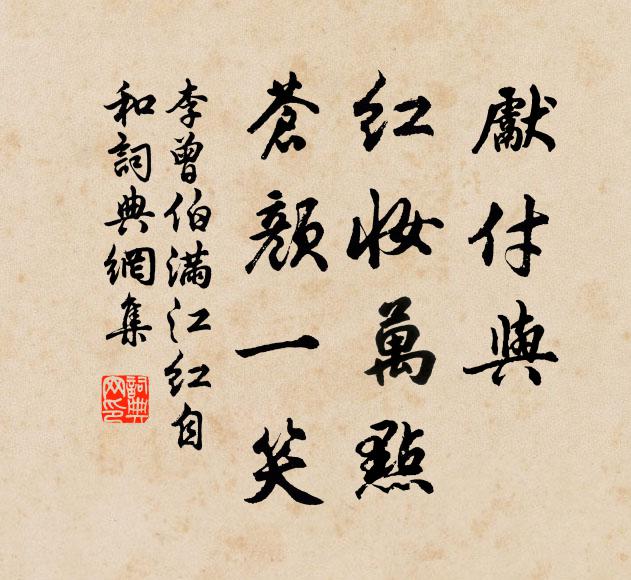 獻付與
红妝萬點
蒼顏一笑
李曾伯满江红自
和詞典網集
詞典
网印